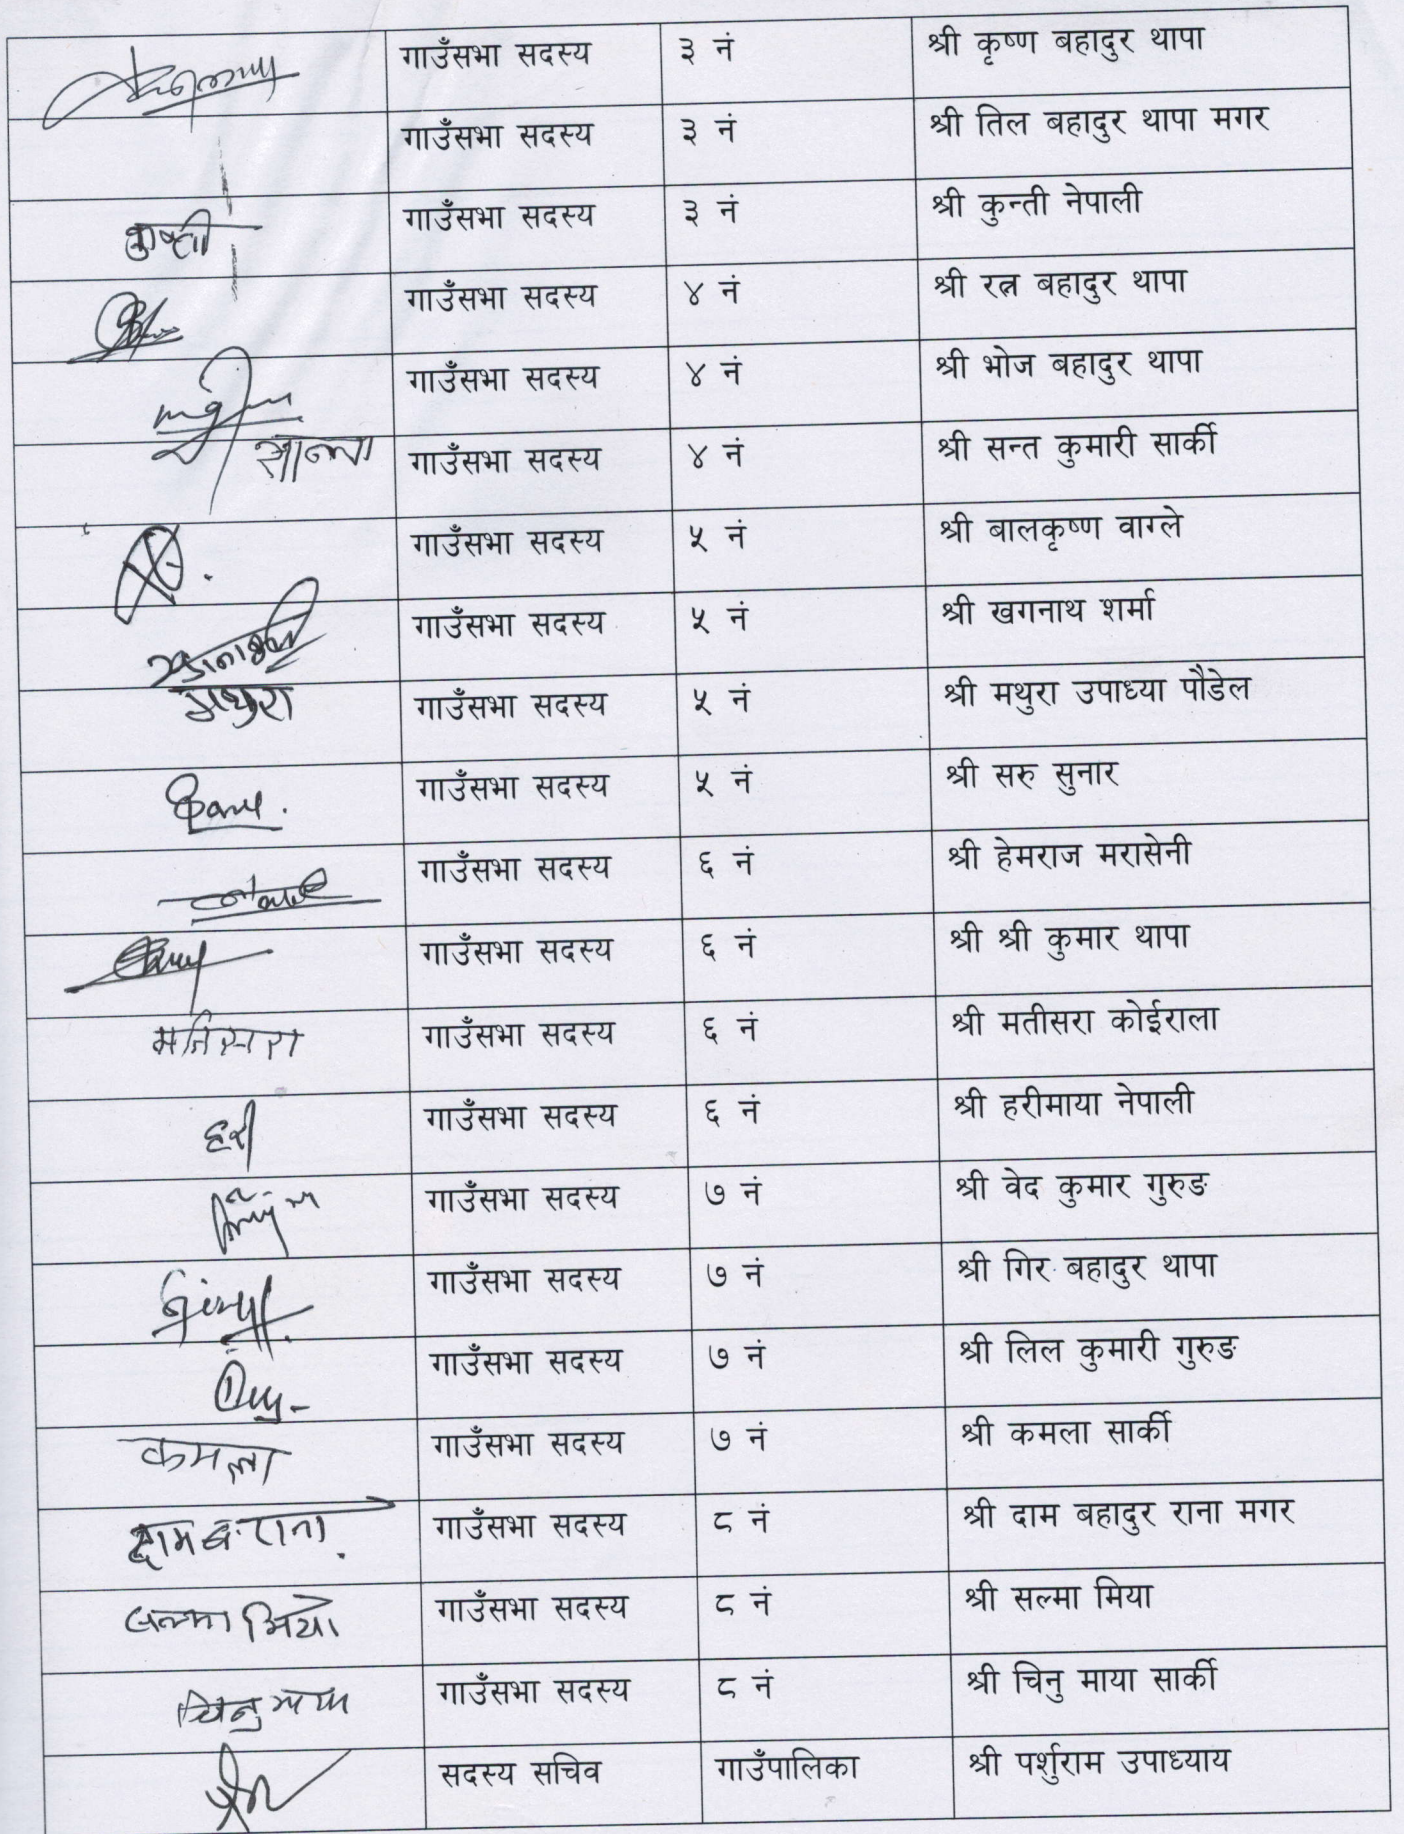 गाउँसभा सदस्य ३ नं श्री कृष्ण बहादुर थापा
गाउँसभा सदस्य ३ नं श्री तिल बहादुर थापा मगर
गाउँसभा सदस्य ३ नं श्री कुन्ती नेपाली
गाउँसभा सदस्य ४ नं श्री रत्न बहादुर थापा
गाउँसभा सदस्य ४ नं श्री भोज बहादुर थापा
गाउँसभा सदस्य ४ नं श्री सन्त कुमारी सार्की
गाउँसभा सदस्य ५ नं श्री बालकृष्ण वाग्ले
गाउँसभा सदस्य ५ नं श्री खगनाथ शर्मा
मथुरा गाउँसभा सदस्य ५ नं श्री मथुरा उपाध्या पौडेल
गाउँसभा सदस्य ५ नं श्री सरु सुनार
गाउँसभा सदस्य ६ नं श्री हेमराज मरासेनी
गाउँसभा सदस्य ६ नं श्री श्री कुमार थापा
मतिसरा गाउँसभा सदस्य ६ नं श्री मतीसरा कोईराला
हरी गाउँसभा सदस्य ६ नं श्री हरीमाया नेपाली
गाउँसभा सदस्य ७ नं श्री वेद कुमार गुरुङ
गाउँसभा सदस्य ७ नं श्री गिर बहादुर थापा
गाउँसभा सदस्य ७ नं श्री लिल कुमारी गुरुङ
कमला गाउँसभा सदस्य ७ नं श्री कमला सार्की
दाम ब. राना गाउँसभा सदस्य ८ नं श्री दाम बहादुर राना मगर
सल्मा मिया गाउँसभा सदस्य ८ नं श्री सल्मा मिया
चिनु माया गाउँसभा सदस्य ८ नं श्री चिनु माया सार्की
सदस्य सचिव गाउँपालिका श्री पर्शुराम उपाध्याय